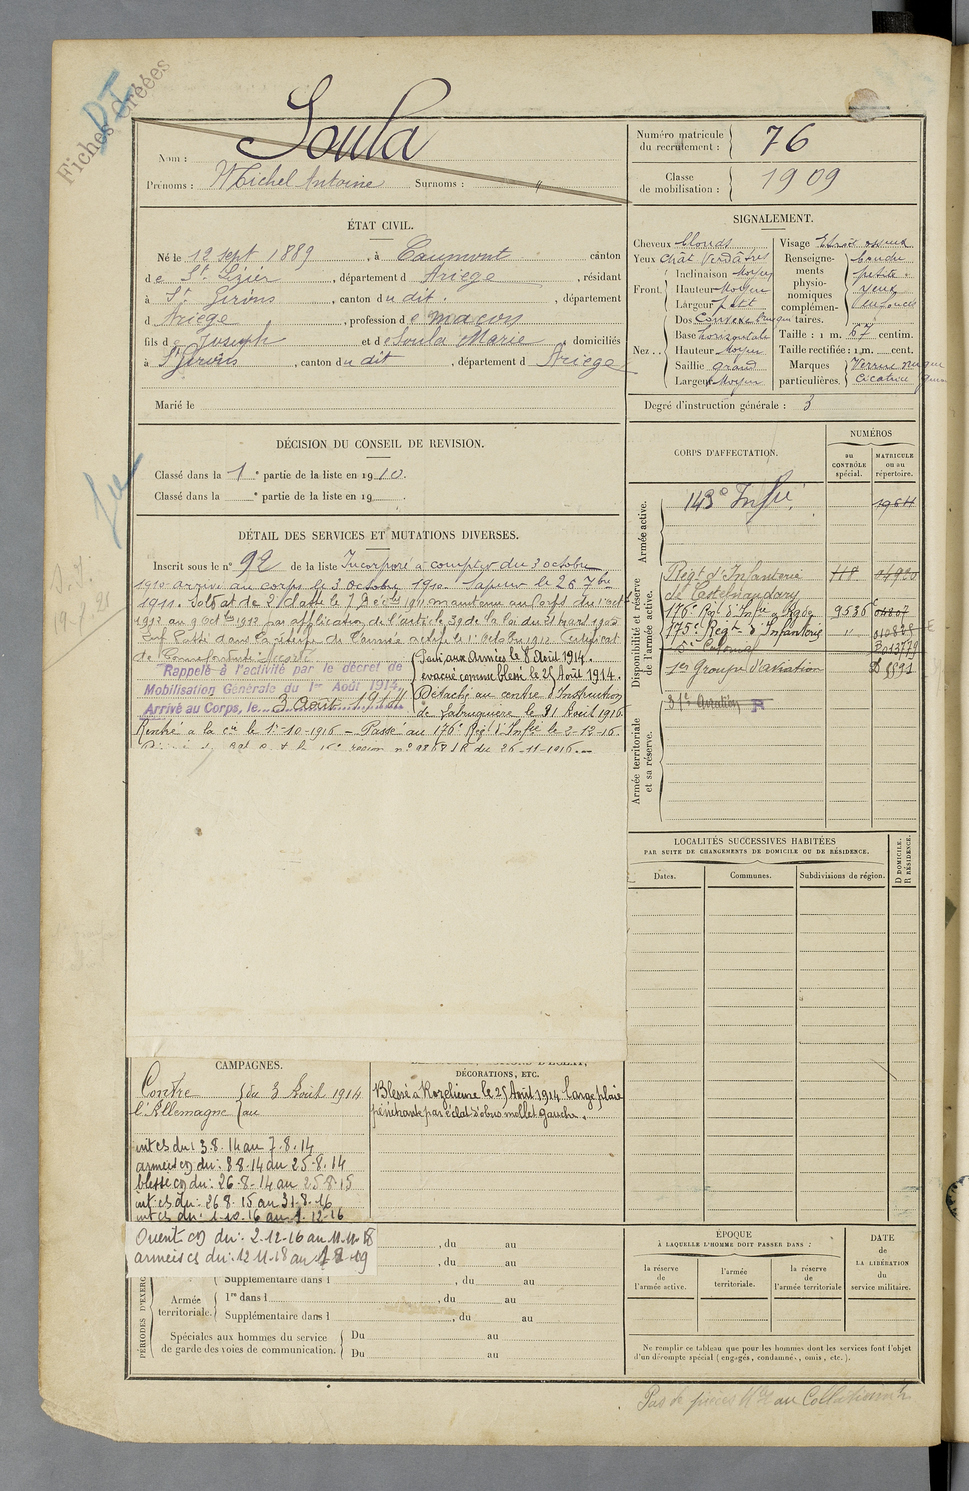 Fiches Créées
Nom : Soula
Prénoms : Michel Antoine Surnoms : "
Numéro matricule du recrutement : 76
Classe de mobilisation : 1909
ÉTAT CIVIL.
Né le 12 sept 1889, à Caumont canton
de St. Lizier, département d Ariege, résidant
à St. Girons, canton du dit., département
d Ariege, profession de maçon
fils de Joseph et de Soula Marie, domiciliés
à St Girons, canton du dit, département d Ariege
Marié le
SIGNALEMENT.
Cheveux blonds
Yeux chat verdâtres
Front. Inclinaison Moyen
Hauteur Moyen
Largeur petit
Nez.. Dos Convexe
Base horizontale
Hauteur Moyen
Saillie grand
Largeur Moyen
Visage osseux
Renseignements physionomiques complémentaires.
Taille : 1 m. 67 centim.
Taille rectifiée : 1 m. cent.
Marques particulières. Cicatrice
Degré d'instruction générale : 3
DÉCISION DU CONSEIL DE REVISION.
Classé dans la 1e partie de la liste en 1910.
Classé dans la e partie de la liste en 19 .
DÉTAIL DES SERVICES ET MUTATIONS DIVERSES.
Inscrit sous le n° 92 de la liste Incorporé à compter du 3 octobre
1910 arrivé au corps le 3 Octobre 1910. Sapeur le 26 7bre
1911. Soldat de 2e classe le maintenu au Corps du
1912 au par application de l'article 39 de la loi du 21 mars 1905
Passé dans la réserve de l'armée active le 1er Octobre 1912 Certificat
de Accordé
Rappelé à l'activité par le décret de
Mobilisation Générale du 1er Août 1914,
Arrivé au Corps, le 3 Août 1914
Parti aux Armées le 8 Août 1914.
évacué comme blessé le 25 Août 1914.
Détaché au centre d'Instruction
de Labruguière le 31 Août 1916.
Rentré à la cie le 1er-10-1916 – Passé au 176e Régt d'Infie le 2-12-16.
CORPS D'AFFECTATION.
NUMÉROS
au CONTRÔLE spécial.
MATRICULE ou au répertoire.
Armée active.
143e Infie
Disponibilité et réserve de l'armée active.
Régt d'Infanterie
de Castelnaudary
176e Régt d'Infie 9536
175e Régt d'Infanterie "
Colonial
1er Groupe d'aviation
Armée territoriale et sa réserve.
Aviation R
LOCALITÉS SUCCESSIVES HABITÉES
PAR SUITE DE CHANGEMENTS DE DOMICILE OU DE RÉSIDENCE.
Dates.
Communes.
Subdivisions de région.
D DOMICILE. R RÉSIDENCE.
CAMPAGNES.
Contre l'Allemagne du 3 Août 1914
au
int cs du : 3.8.14 au 7.8.14
armées cd du : 8 8-14 au 25-8.14
blessé cd du : 26.8-14 au 25 8-15
int cs du : 26 8.15 au 31-8.16
int cs du : 1-10.16 au 1 12-16
Orient cd du : 2-12-16 au 11-11-18
armées cs du : 12 11-18 au
DÉCORATIONS, ETC.
Blessé à Rozelieure le 25 Août 1914 large plaie
pénétrante par éclat d'obus mollet gauche.
, du au
, du au
PÉRIODES D'EXERC
Supplémentaire dans l , du au
Armée territoriale.
1re dans l , du au
Supplémentaire dans l , du au
Spéciales aux hommes du service
de garde des voies de communication.
Du au
Du au
ÉPOQUE
À LAQUELLE L'HOMME DOIT PASSER DANS :
la réserve de l'armée active.
l'armée territoriale.
la réserve de l'armée territoriale
DATE DE LA LIBÉRATION du service militaire.
Ne remplir ce tableau que pour les hommes dont les services font l'objet
d'un décompte spécial (engagés, condamnés, omis, etc.).